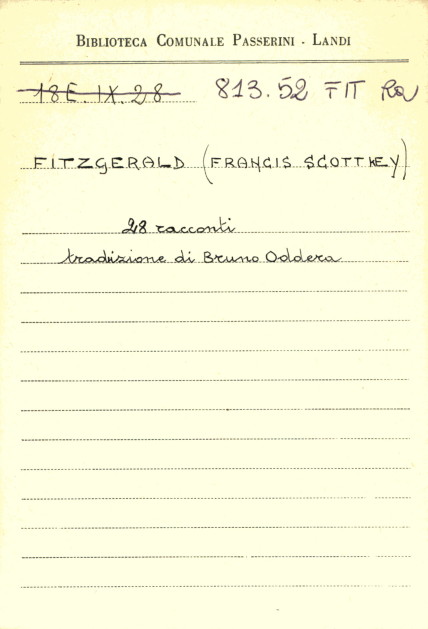 BIBLIOTECA COMUNALE PASSERINI - LANDI
18E.IX.28 813.52 FIT Ra
FITZGERALD (FRANCIS SCOTT KEY)
28 racconti
traduzione di Bruno Oddera